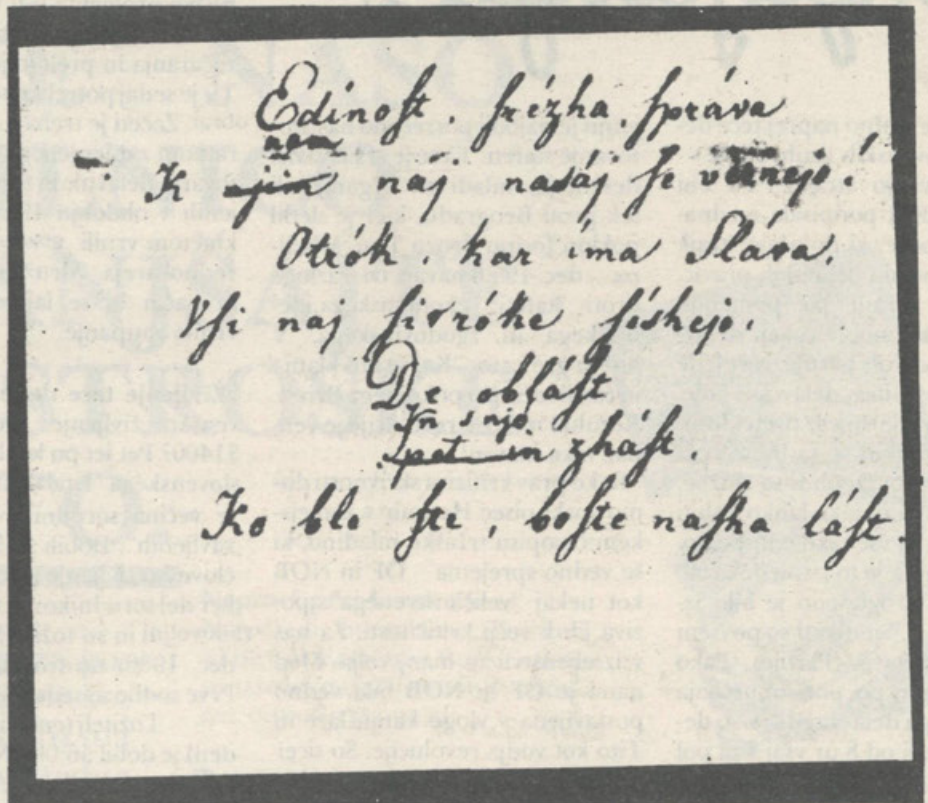 Edínoſt, ſrézha, ſpráva
nam
K njim naj nasaj ſe vernejo,
Otrók, kar íma Sláva,
Vſi naj ſi v roke ſéshejo,
De oblaſt
In s njo
ſpet in zháſt,
Ko blo ſte, boſte naſha láſt.